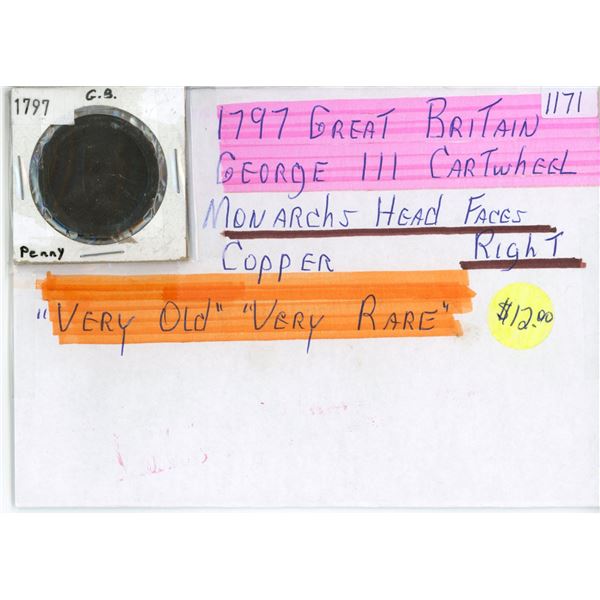 G.B.
1797
Penny
1171
1797 GREAT BRITAIN
GEORGE III CARTWHEEL
MONARCHS HEAD FACES
COPPER RIGHT
"VERY OLD" "VERY RARE"
$12.00